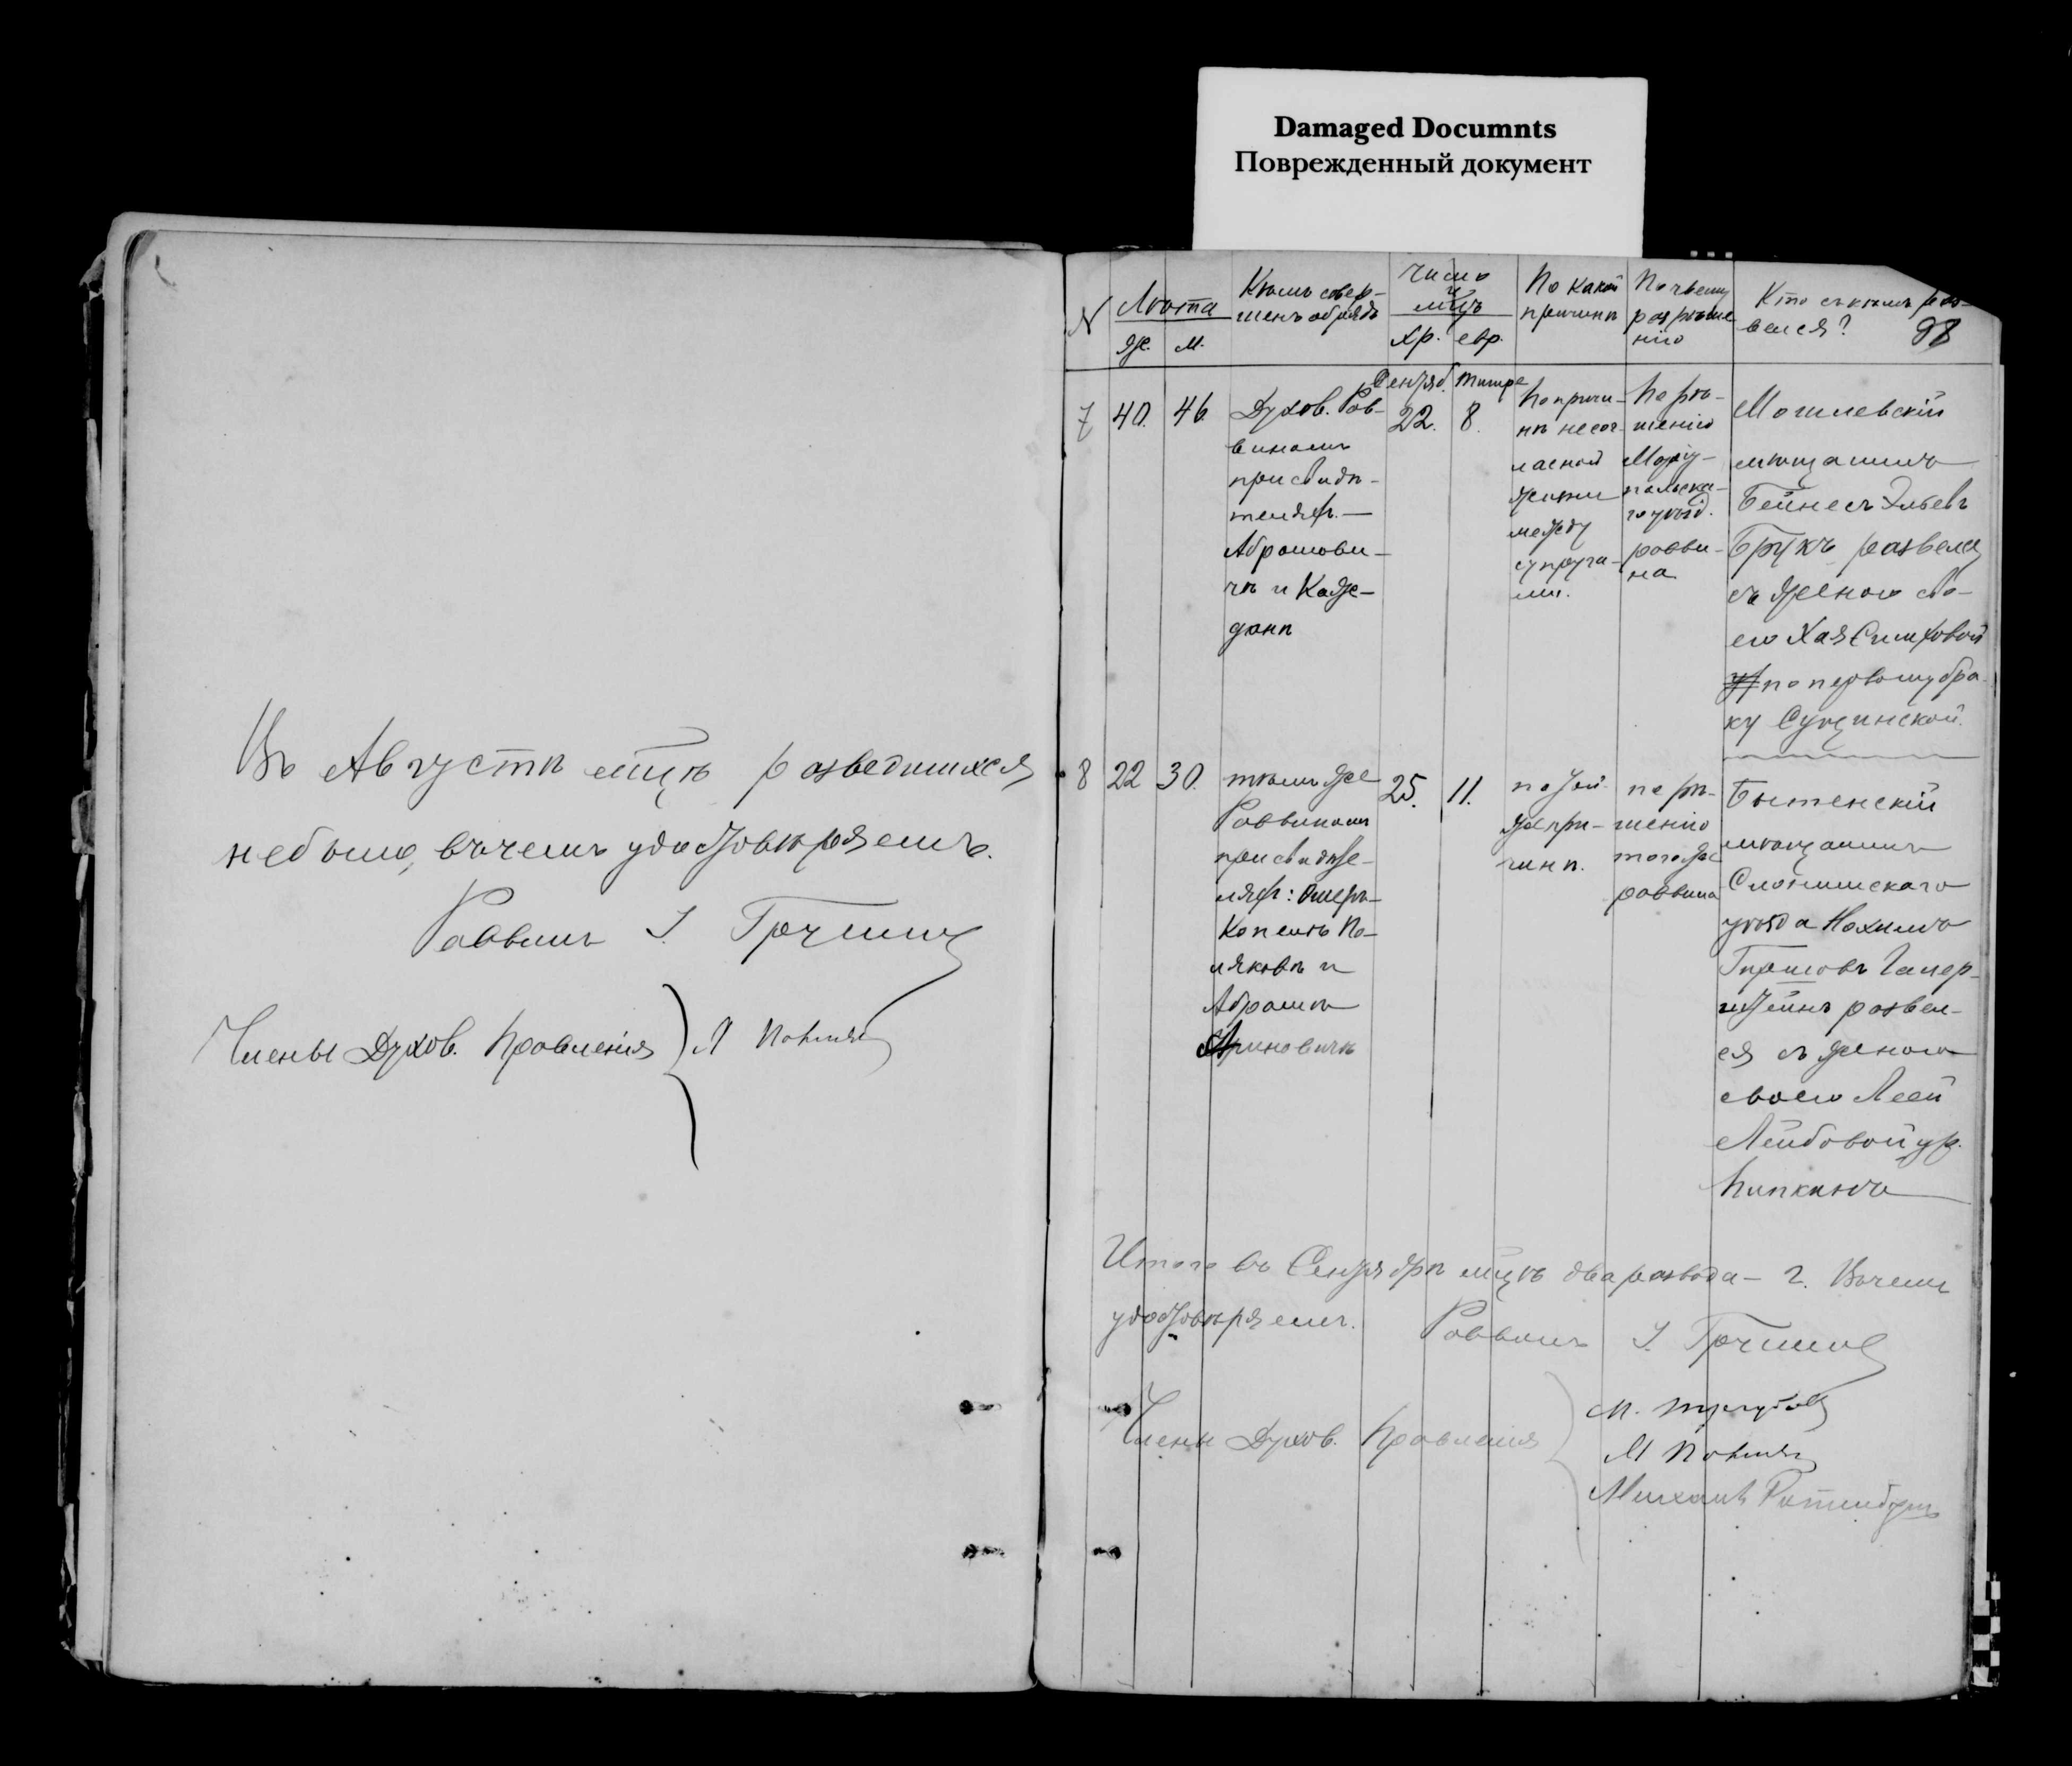 Damaged Documnts
Поврежденный документ
Въ Августѣ м-цѣ разведшихся
не было, въ чемъ удостовѣряемъ.
Раввинъ
Члены Духов. Правленія
98
№
Лѣта
ж.
м.
Кѣмъ совер-
шенъ обрядъ
Число
и
мѣц
хр.
евр.
По какой
причинѣ
По чьему
разрѣше
нію
Кто съ кѣмъ раз-
велся?
7
40.
46.
Духов. Рав-
виномъ
при свидѣ-
теляхъ.—
Абрамови-
чѣ и Каж-
данѣ
Сентяб.
22.
Тишре
8.
По причи-
нѣ несог-
ласной
жизни
между
супруга-
ми.
По рѣ-
шенію
Маріу-
польска-
го уѣзд.
равви-
на
Могилевскій
мѣщанинъ
Бейнесъ Эльевъ
Брукъ развелся
съ женою сво-
ею Хая Симховой
по первому бра-
ку Сущинской.
8
22
30.
тѣмъ же
Раввиномъ
при свидѣте-
ляхъ:
Копелѣ По-
ляковѣ и
Абрамѣ
Ариновичѣ
25.
11.
по той
же при-
чинѣ.
по рѣ-
шенію
того же
раввина
Бытенскій
мѣщанинъ
Слонимскаго
уѣзда Нохимъ
Гиршовъ Галер-
штейнъ развел-
ся съ женою
своею Леей
Лейбовой ур.
Пипкинъ
Итого въ Сентябрѣ м-цѣ два развода — 2. Въ чемъ
удостовѣряемъ. Раввинъ
Члены Духов. Правленія